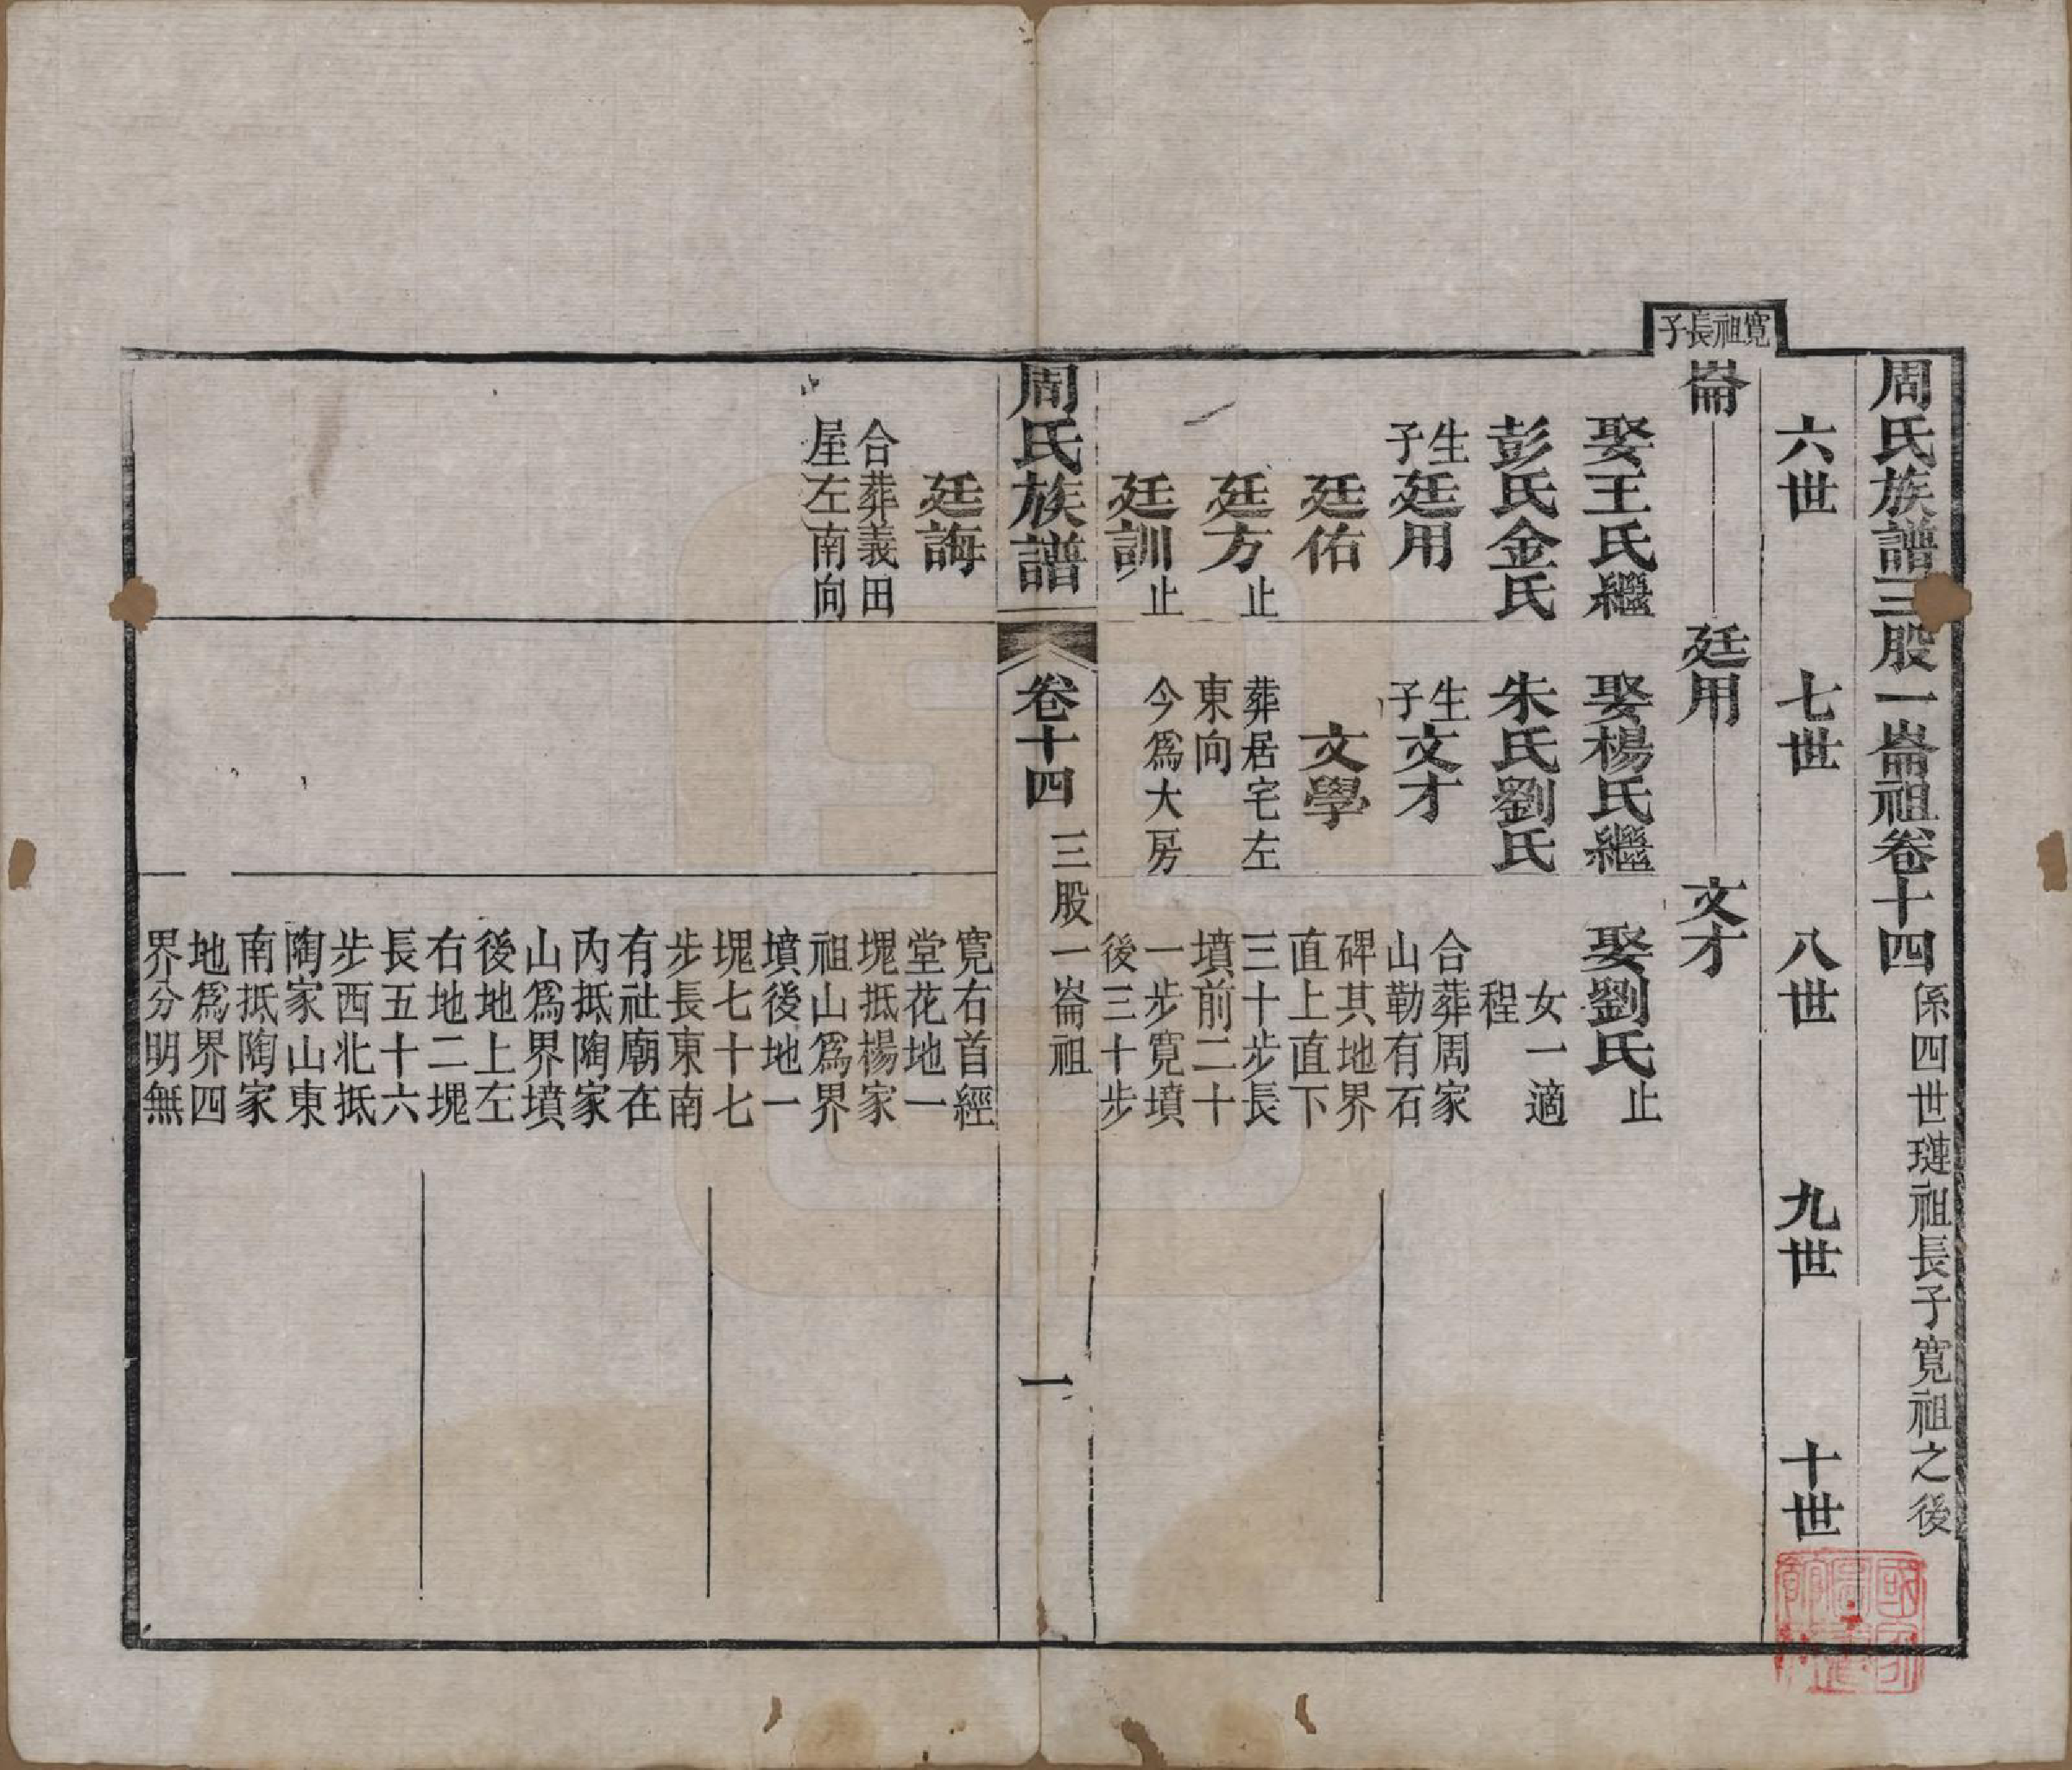 周氏族譜三股一崙祖卷十四 係四世璉祖長子寬祖之後
六世 七世 八世 九世 十世
寬祖長子
崙 廷用 文才
娶王氏繼
彭氏金氏
生子廷用
廷佑
廷方止
廷訓止
娶楊氏繼
朱氏劉氏
生子文才
文學
葬居宅左
東向
今爲大房
娶劉氏止
女一適
程
合葬周家
山勒有石
碑其地界
直上直下
三十步長
墳前二十
一步寬墳
後三十步
周氏族譜 卷十四 三股一崙祖 一
廷誨
合葬義田
屋左南向
寬右首經
堂花地一
塊抵楊家
祖山爲界
墳後地一
塊七十七
步長東南
有社廟在
內抵陶家
山爲界墳
後地上左
右地二塊
長五十六
步西北抵
陶家山東
南抵陶家
地爲界四
界分明無